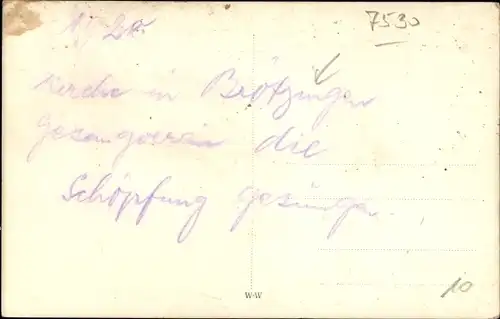 7530
Kirche in Brötzingen
Gesangverein die
Schöpfung gesungen.
W-W
10